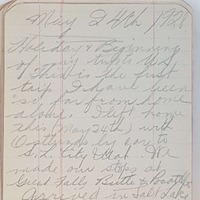 May 24th / 1928
Holiday & Beginning
of my trip
This is the first
trip I have been
so far from home
alone. I left home
this (May 24th) with
by car to
S.L. City Utah. We
made our stops at
Great Falls Butte & Pocatello
arrived in Salt Lake